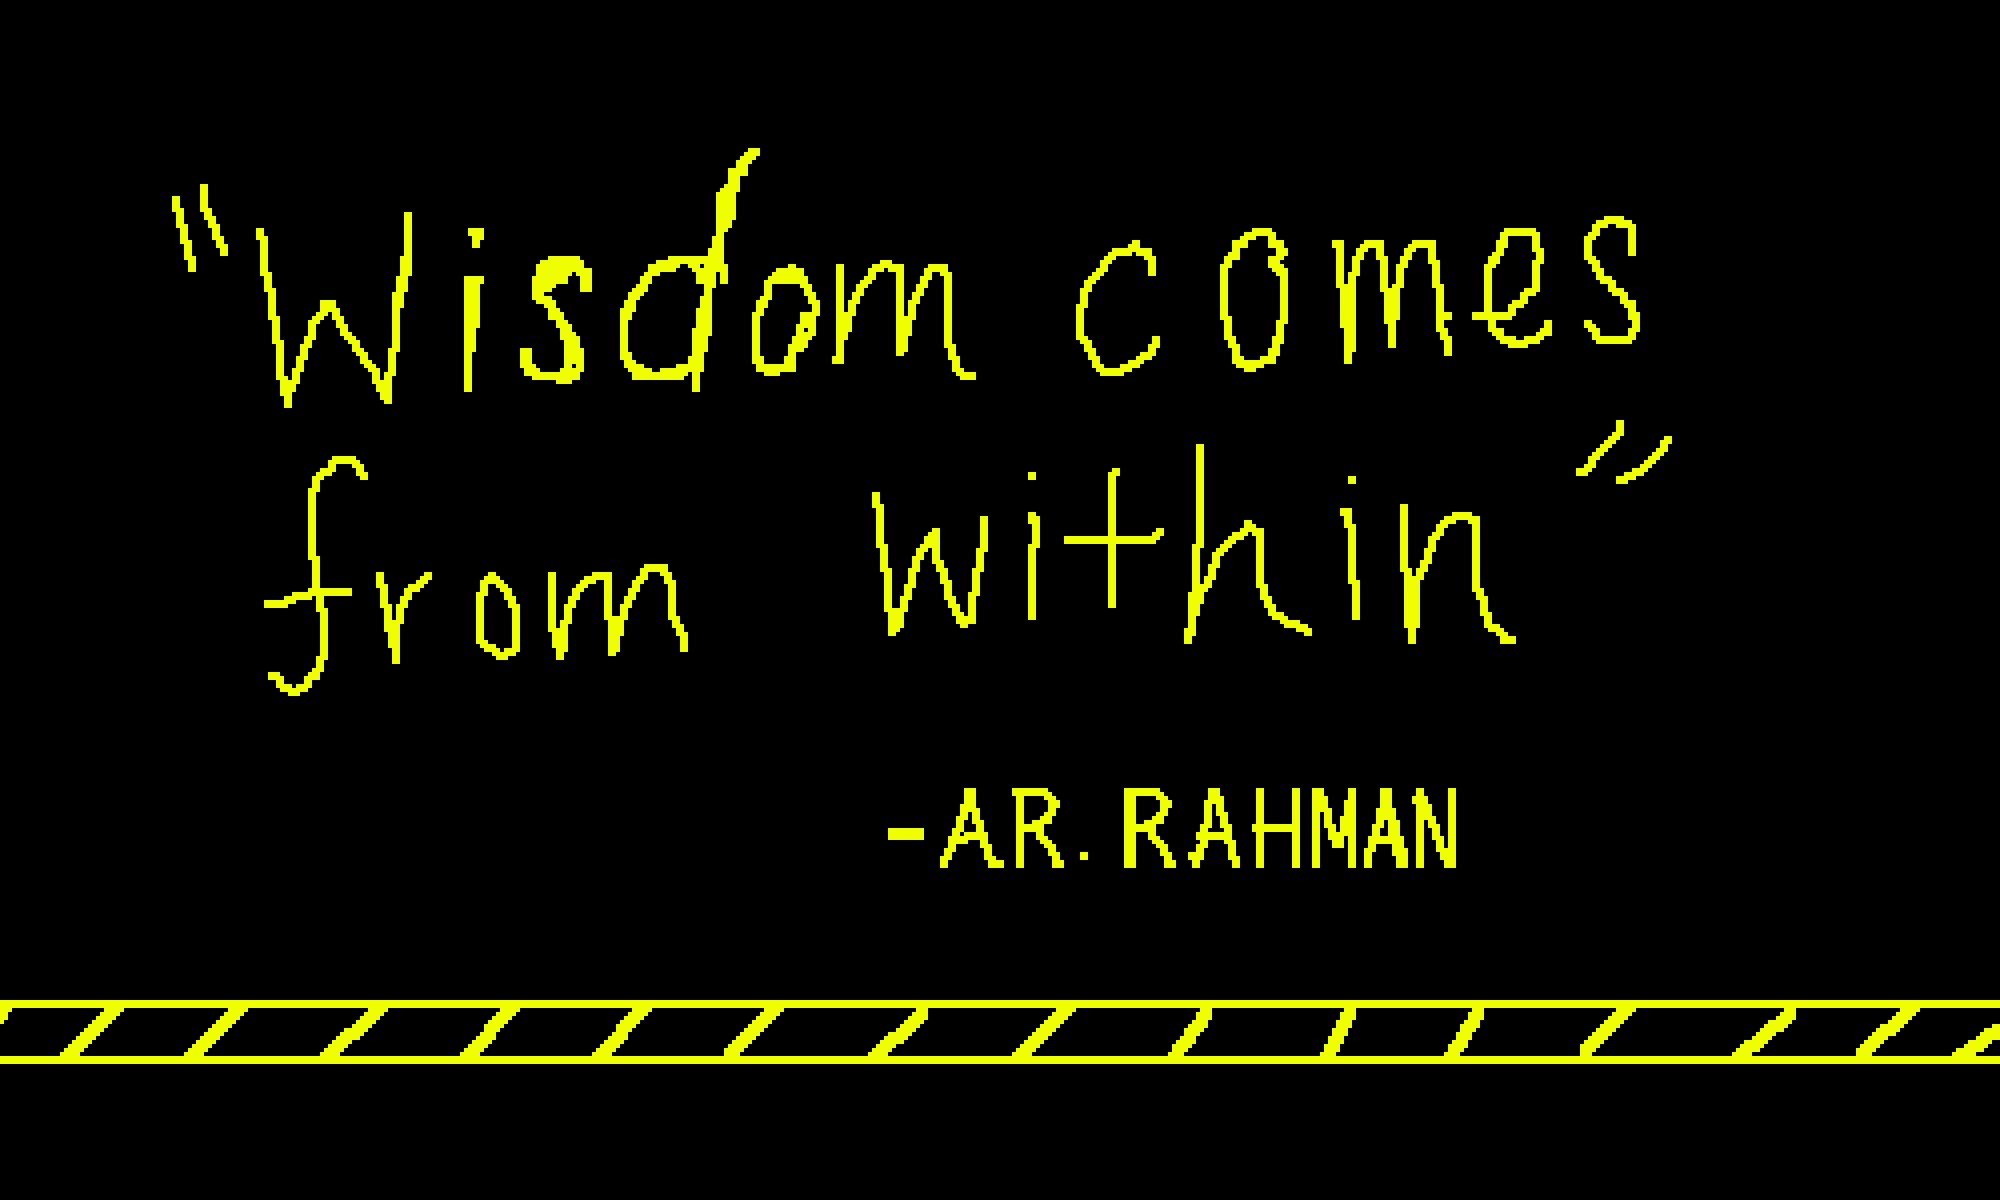 "Wisdom comes
from within"
-AR. RAHMAN